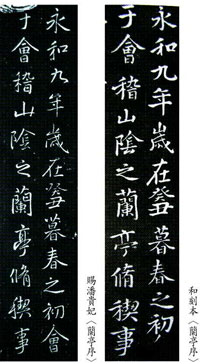 和刻本〈蘭亭序〉
永和九年歲在癸丑暮春之初
于會稽山陰之蘭亭脩稧事
賜潘貴妃〈蘭亭序〉
永和九年歲在癸丑暮春之初會
于會稽山陰之蘭亭脩稧事